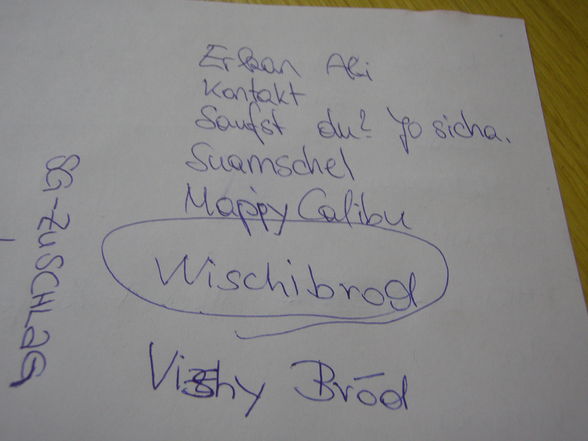 Erkan Ali
Kontakt
Saufst du? Jo sicha.
Suamschel
Mappy Calibu
Wischibrod
Vishy Bród
SG-ZuSCHLAG